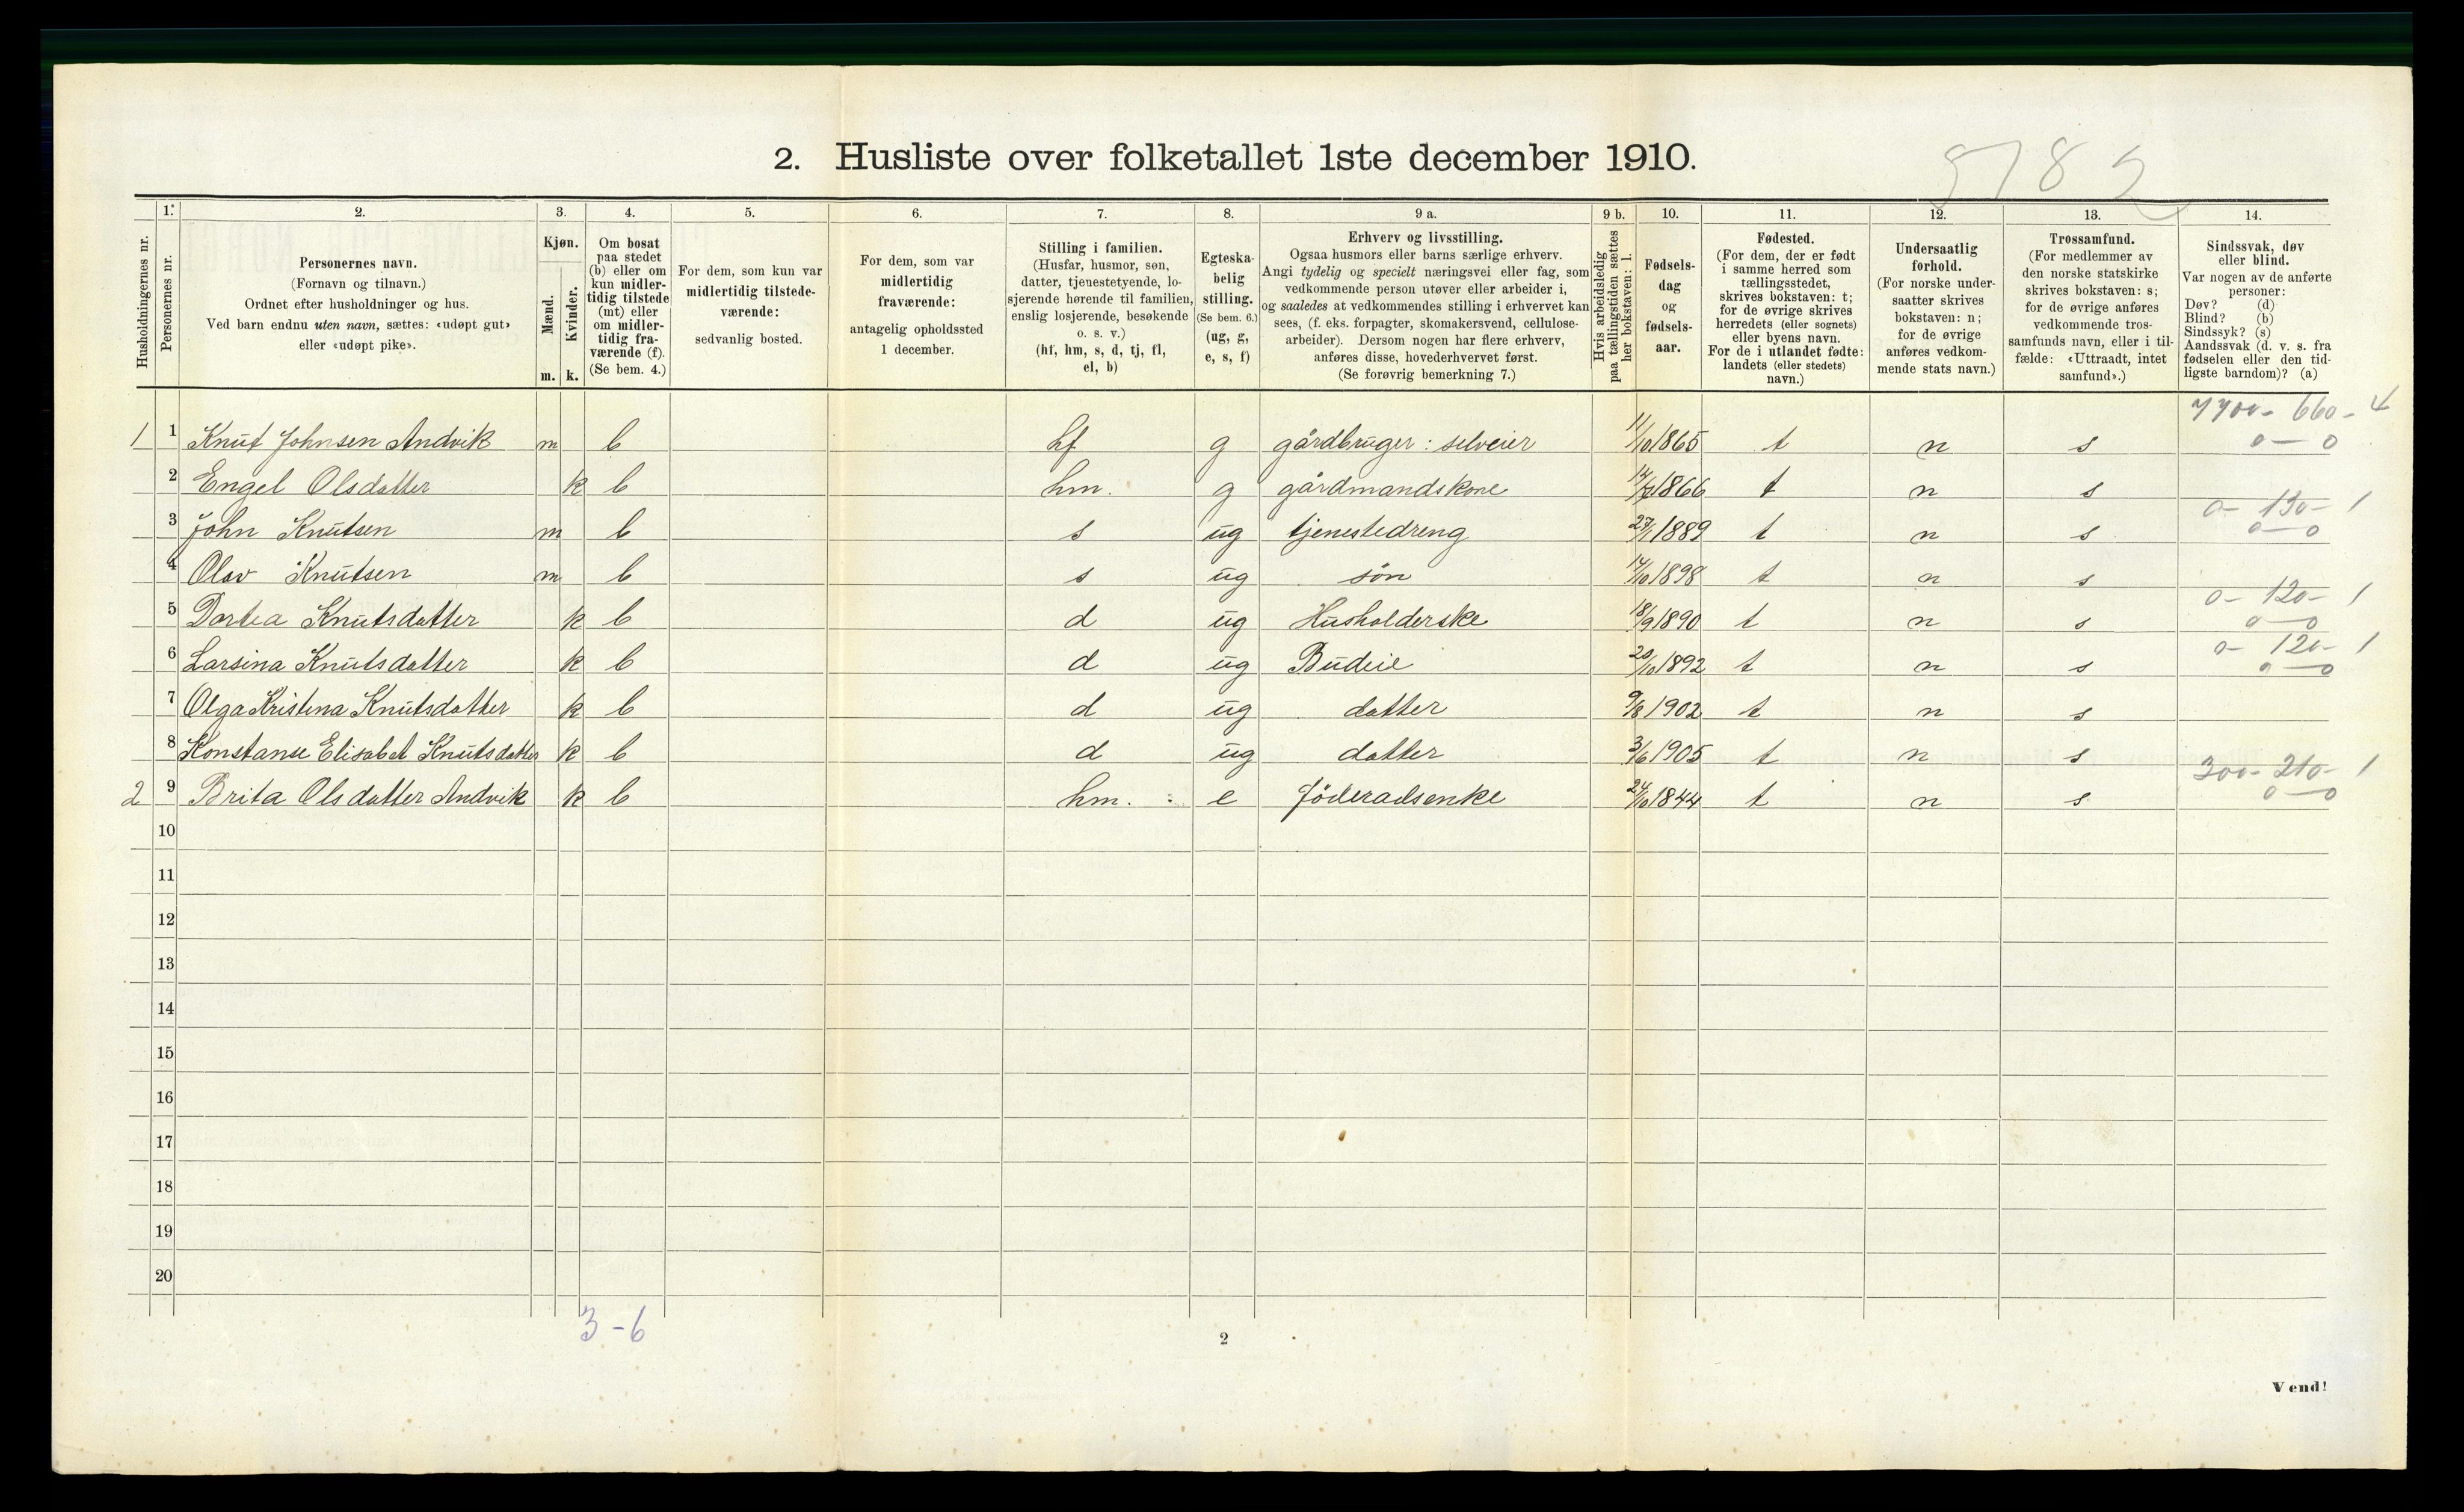 2. Husliste over folketallet 1ste december 1910.
1. 2. 3. 4. 5. 6. 7. 8. 9 a. 9 b. 10. 11. 12. 13. 14.
Husholdningernes nr.
Personernes nr.
Personernes navn.
(Fornavn og tilnavn.)
Ordnet efter husholdninger og hus.
Ved barn endnu uten navn, sættes: «udøpt gut»
eller «udøpt pike».
Kjøn.
Mænd.
Kvinder.
m. k.
Om bosat
paa stedet
(b) eller om
kun midler-
tidig tilstede
(mt) eller
om midler-
tidig fra-
værende (f).
(Se bem. 4.)
For dem, som kun var
midlertidig tilstede-
værende:
sedvanlig bosted.
For dem, som var
midlertidig
fraværende:
antagelig opholdssted
1 december.
Stilling i familien.
(Husfar, husmor, søn,
datter, tjenestetyende, lo-
sjerende hørende til familien,
enslig losjerende, besøkende
o. s. v.)
(hf, hm, s, d, tj, fl,
el, b)
Egteska-
belig
stilling.
(Se bem. 6.)
(ug, g,
e, s, f)
Erhverv og livsstilling.
Ogsaa husmors eller barns særlige erhverv.
Angi tydelig og specielt næringsvei eller fag, som
vedkommende person utøver eller arbeider i,
og saaledes at vedkommendes stilling i erhvervet kan
sees, (f. eks. forpagter, skomakersvend, cellulose-
arbeider). Dersom nogen har flere erhverv,
anføres disse, hovederhvervet først.
(Se forøvrig bemerkning 7.)
Hvis arbeidsledig
paa tællingstiden sættes
her bokstaven: l.
Fødsels-
dag
og
fødsels-
aar.
Fødested.
(For dem, der er født
i samme herred som
tællingsstedet,
skrives bokstaven: t;
for de øvrige skrives
herredets (eller sognets)
eller byens navn.
For de i utlandet fødte:
landets (eller stedets)
navn.)
Undersaatlig
forhold.
(For norske under-
saatter skrives
bokstaven: n;
for de øvrige
anføres vedkom-
mende stats navn.)
Trossamfund.
(For medlemmer av
den norske statskirke
skrives bokstaven: s;
for de øvrige anføres
vedkommende tros-
samfunds navn, eller i til-
fælde: «Uttraadt, intet
samfund».)
Sindssvak, døv
eller blind.
Var nogen av de anførte
personer:
Døv? (d)
Blind? (b)
Sindssyk? (s)
Aandssvak (d. v. s. fra
fødselen eller den tid-
ligste barndom)? (a)
660 - 4
1 1 Knut Johnsen Andvik m b hf g gårdbruger : selveier 11/10 1865 t n s 0 — 0
2 Engel Olsdatter k b hm. g gårdmandskone 1866 t n s
0 - 130 - 1
3 John Knutsen m b s ug tjenestedreng 27/1 1889 t n s 0 — 0
4 Olav Knutsen m b s ug søn 14/10 1898 t n s
0 - 120 - 1
5 Dortea Knutsdatter k b d ug Husholderske 18/9 1890 t n s 0 — 0
0 - 120 - 1
6 Larsina Knutsdatter k b d ug Budeie 20/10 1892 t n s 0 — 0
7 Olga Kristina Knutsdatter k b d ug datter 9/8 1902 t n s
8 Konstanse Elisabet Knutsdatter k b d ug datter 3/6 1905 t n s
300 - 210 - 1
2 9 Brita Olsdatter Andvik k b hm. : e føderadsenke 24/10 1844 t n s 0 — 0
10
11
12
13
14
15
16
17
18
19
20
3 - 6
2
Vend!